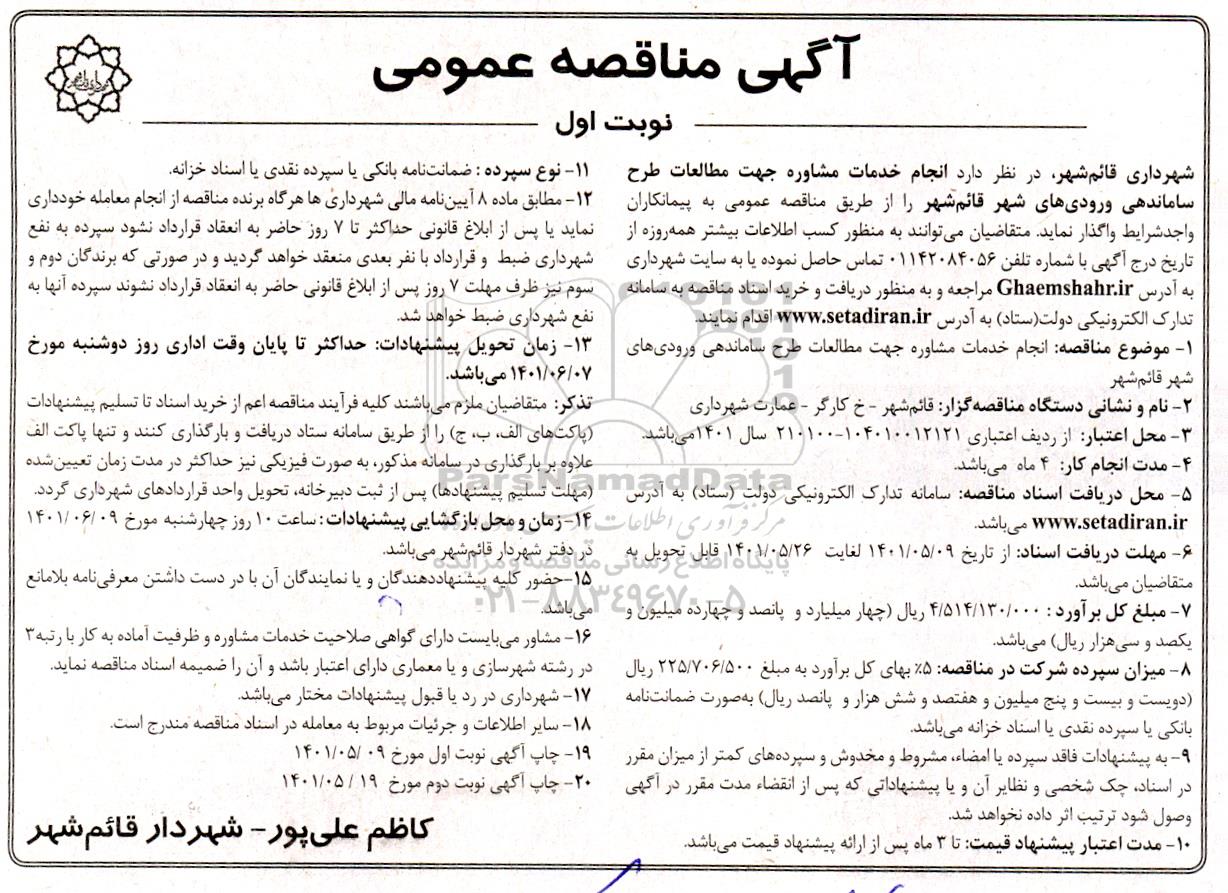 آگهی مناقصه عمومی
نوبت اول
شهرداری قائم‌شهر، در نظر دارد انجام خدمات مشاوره جهت مطالعات طرح
ساماندهی ورودی‌های شهر قائم‌شهر را از طریق مناقصه عمومی به پیمانکاران
واجدشرایط واگذار نماید. متقاضیان می‌توانند به منظور کسب اطلاعات بیشتر همه‌روزه از
تاریخ درج آگهی با شماره تلفن ۰۱۱۴۲۰۸۴۰۵۶ تماس حاصل نموده یا به سایت شهرداری
به آدرس Ghaemshahr.ir مراجعه و به منظور دریافت و خرید اسناد مناقصه به سامانه
تدارک الکترونیکی دولت(ستاد) به آدرس www.setadiran.ir اقدام نمایند.
۱- موضوع مناقصه: انجام خدمات مشاوره جهت مطالعات طرح ساماندهی ورودی‌های
شهر قائم‌شهر
۲- نام و نشانی دستگاه مناقصه‌گزار: قائم‌شهر - خ کارگر - عمارت شهرداری
۳- محل اعتبار: از ردیف اعتباری ۱۰۴۰۱۰۰۱۲۱۲۱-۲۱۰۱۰۰ سال ۱۴۰۱می‌باشد.
۴- مدت انجام کار: ۴ ماه می‌باشد.
۵- محل دریافت اسناد مناقصه: سامانه تدارک الکترونیکی دولت (ستاد) به آدرس
www.setadiran.ir می‌باشد.
۶- مهلت دریافت اسناد: از تاریخ ۱۴۰۱/۰۵/۰۹ لغایت ۱۴۰۱/۰۵/۲۶ قابل تحویل به
متقاضیان می‌باشد.
۷- مبلغ کل برآورد : ۴/۵۱۴/۱۳۰/۰۰۰ ریال (چهار میلیارد و پانصد و چهارده میلیون و
یکصد و سی‌هزار ریال) می‌باشد.
۸- میزان سپرده شرکت در مناقصه: ۵٪ بهای کل برآورد به مبلغ ۲۲۵/۷۰۶/۵۰۰ ریال
(دویست و بیست و پنج میلیون و هفتصد و شش هزار و پانصد ریال) به‌صورت ضمانت‌نامه
بانکی یا سپرده نقدی یا اسناد خزانه می‌باشد.
۹- به پیشنهادات فاقد سپرده یا امضاء، مشروط و مخدوش و سپرده‌های کمتر از میزان مقرر
در اسناد، چک شخصی و نظایر آن و یا پیشنهاداتی که پس از انقضاء مدت مقرر در آگهی
وصول شود ترتیب اثر داده نخواهد شد.
۱۰- مدت اعتبار پیشنهاد قیمت: تا ۳ ماه پس از ارائه پیشنهاد قیمت می‌باشد.
۱۱- نوع سپرده : ضمانت‌نامه بانکی یا سپرده نقدی یا اسناد خزانه.
۱۲- مطابق ماده ۸ آیین‌نامه مالی شهرداری ها هرگاه برنده مناقصه از انجام معامله خودداری
نماید یا پس از ابلاغ قانونی حداکثر تا ۷ روز حاضر به انعقاد قرارداد نشود سپرده به نفع
شهرداری ضبط و قرارداد با نفر بعدی منعقد خواهد گردید و در صورتی که برندگان دوم و
سوم نیز ظرف مهلت ۷ روز پس از ابلاغ قانونی حاضر به انعقاد قرارداد نشوند سپرده آنها به
نفع شهرداری ضبط خواهد شد.
۱۳- زمان تحویل پیشنهادات: حداکثر تا پایان وقت اداری روز دوشنبه مورخ
۱۴۰۱/۰۶/۰۷ می‌باشد.
تذکر: متقاضیان ملزم می‌باشند کلیه فرآیند مناقصه اعم از خرید اسناد تا تسلیم پیشنهادات
(پاکت‌های الف، ب، ج) را از طریق سامانه ستاد دریافت و بارگذاری کنند و تنها پاکت الف
علاوه بر بارگذاری در سامانه مذکور، به صورت فیزیکی نیز حداکثر در مدت زمان تعیین‌شده
(مهلت تسلیم پیشنهادها) پس از ثبت دبیرخانه، تحویل واحد قراردادهای شهرداری گردد.
۱۴- زمان و محل بازگشایی پیشنهادات : ساعت ۱۰ روز چهارشنبه مورخ ۱۴۰۱/۰۶/۰۹
در دفتر شهردار قائم‌شهر می‌باشد.
۱۵-حضور کلیه پیشنهاددهندگان و یا نمایندگان آن با در دست داشتن معرفی‌نامه بلامانع
می‌باشد.
۱۶- مشاور می‌بایست دارای گواهی صلاحیت خدمات مشاوره و ظرفیت آماده به کار با رتبه۳
در رشته شهرسازی و یا معماری دارای اعتبار باشد و آن را ضمیمه اسناد مناقصه نماید.
۱۷- شهرداری در رد یا قبول پیشنهادات مختار می‌باشد.
۱۸- سایر اطلاعات و جزئیات مربوط به معامله در اسناد مناقصه مندرج است.
۱۹- چاپ آگهی نوبت اول مورخ ۰۹ /۱۴۰۱/۰۵
۲۰- چاپ آگهی نوبت دوم مورخ ۱۹ / ۱۴۰۱/۰۵
کاظم علی‌پور- شهردار قائم‌شهر
ParsNamadData
پایگاه اطلاع رسانی مناقصه و مزایده
۰۲۱-۸۸۳۴۹۶۷۰-۵